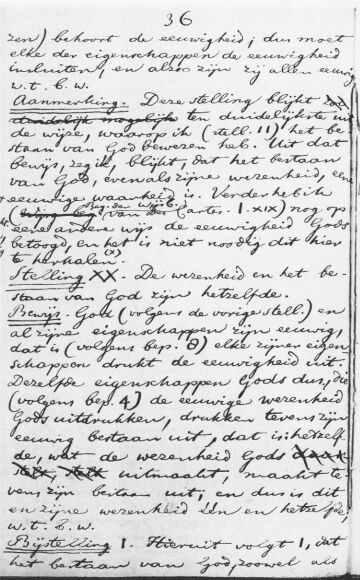 36
zen) behoort de eeuwigheid; dus moet
elke der eigenschappen de eeuwigheid
insluiten, en alzoo zijn zij allen eeuwig
w.t.b.w.
Aanmerking. Deze stelling blijkt zoo
duidelijk mogelijk ten duidelijkste uit
de wijze, waarop ik (stell. 11) het be-
staan van God bewezen heb. Uit dat
bewijs, zeg ik, blijkt, dat het bestaan
van God, evenals zijne wezenheid, eene
eeuwige waarheid is. Verder heb ik
Beg. der Wijsb.
van Des Cartes. I. XIX) nog op
eene andere wijs de eeuwigheid Gods
betoogd, en het is niet noodig dit hier
te herhalen.
Stelling XX. De wezenheid en het be-
staan van God zijn hetzelfde.
Bewijs. God (volgens de vorige stell.) en
al zijne eigenschappen zijn eeuwig,
dat is (volgens bep. 8) elke zijner eigen
schappen drukt de eeuwigheid uit.
Dezelfde eigenschappen Gods dus, die
(volgens bep. 4) de eeuwige wezenheid
Gods uitdrukken, drukken tevens zijn
eeuwig bestaan uit, dat is: hetzelf-
de, wat de wezenheid Gods
uitmaakt, maakt te-
vens zijn bestaan uit; en dus is dit
en zijne wezenheid één en hetzelfde,
w.t.b.w.
Bijstelling 1. Hieruit volgt 1, dat
het bestaan van God, zoowel als